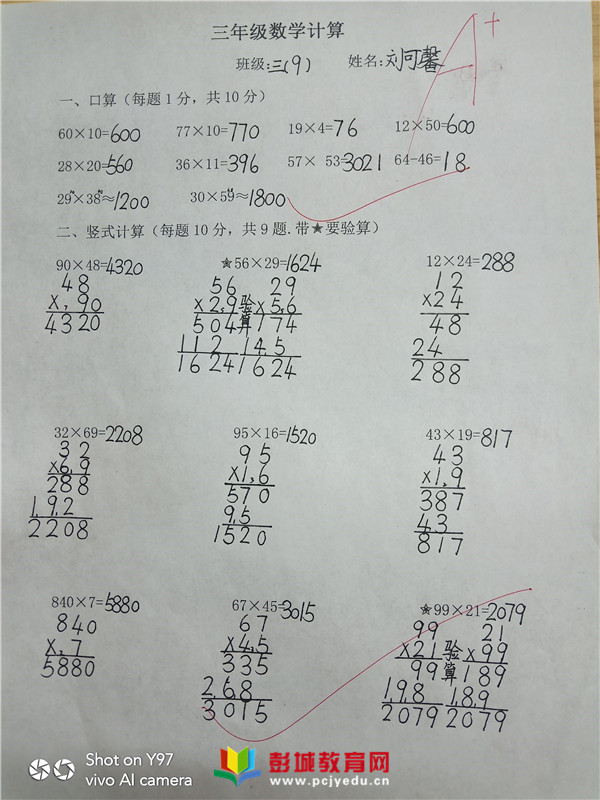 三年级数学计算
A+
班级:三(9) 姓名:刘可馨
一、口算（每题1分，共10分）
60×10=600 77×10=770 19×4=76 12×50=600
28×20=560 36×11=396 57× 53=3021 64-46=18
29×38≈1200 30×59≈1800
二、竖式计算（每题10分，共9题.带★要验算）
90×48=4320 ★56×29=1624 12×24=288
48 56 29 12
×90 ×29 验 ×56 ×24
4320 504 算 174 48
112 145 24
1624 1624 288
32×69=2208 95×16=1520 43×19=817
32 95 43
×69 ×16 ×19
288 570 387
192 95 43
2208 1520 817
840×7=5880 67×45=3015 ★99×21=2079
840 67 99 21
×7 ×45 ×21 验 ×99
5880 335 99 算 189
268 198 189
3015 2079 2079
Shot on Y97
vivo AI camera
彭城教育网
www.pcjyedu.cn